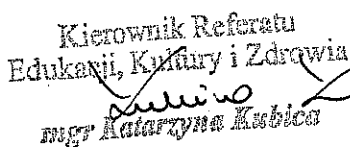 Kierownik Referatu
Edukacji, Kultury i Zdrowia
mgr Katarzyna Kubica